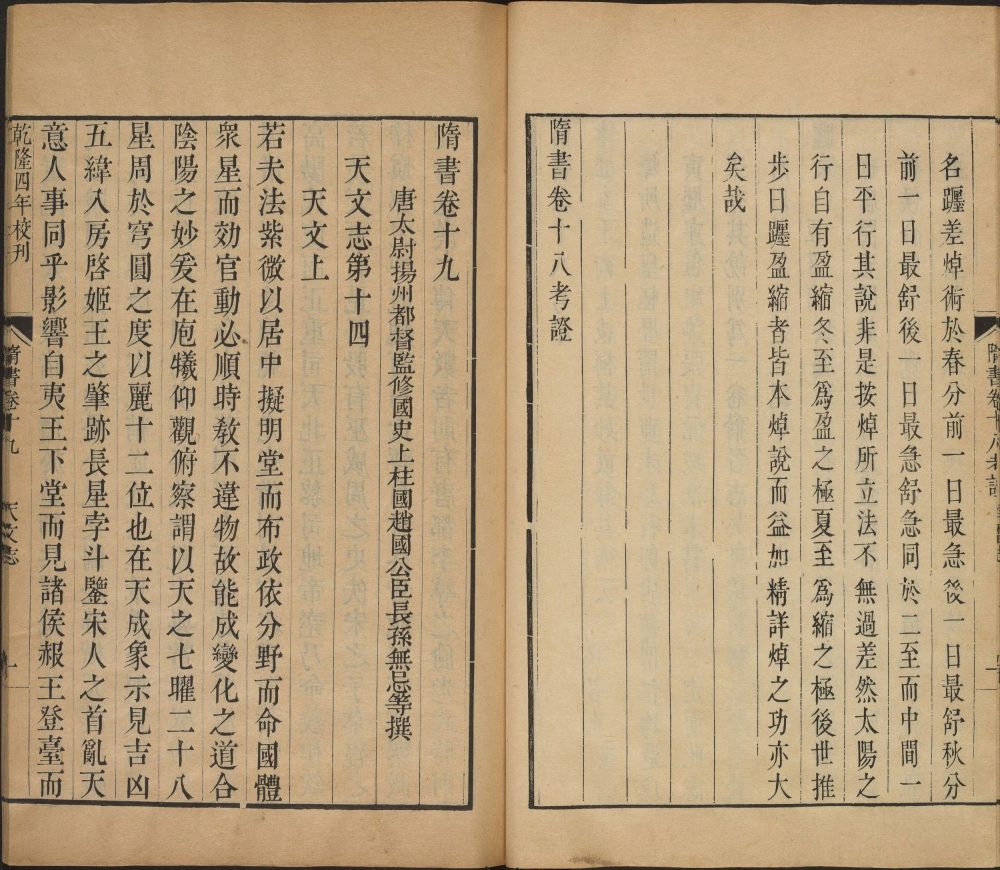 名躔差焯術於春分前一日最急後一日最舒秋分
前一日最舒後一日最急舒急同於二至而中間一
日平行其說非是按焯所立法不無過差然太陽之
行自有盈縮冬至爲盈之極夏至爲縮之極後世推
步日躔盈縮者皆本焯說而益加精詳焯之功亦大
矣哉
隋書卷十八考證
隋書卷十八考證
隋書卷十九
唐太尉揚州都督監修國史上柱國趙國公臣長孫無忌等撰
天文志第十四
天文上
若夫法紫微以居中擬明堂而布政依分野而命國體
衆星而効官動必順時敎不違物故能成變化之道合
陰陽之妙爰在庖犧仰觀俯察謂以天之七曜二十八
星周於穹圓之度以麗十二位也在天成象示見吉凶
五緯入房啓姬王之肇跡長星孛斗鑒宋人之首亂天
意人事同乎影響自夷王下堂而見諸侯赧王登臺而
乾隆四年校刊
隋書卷十九
天文志
一